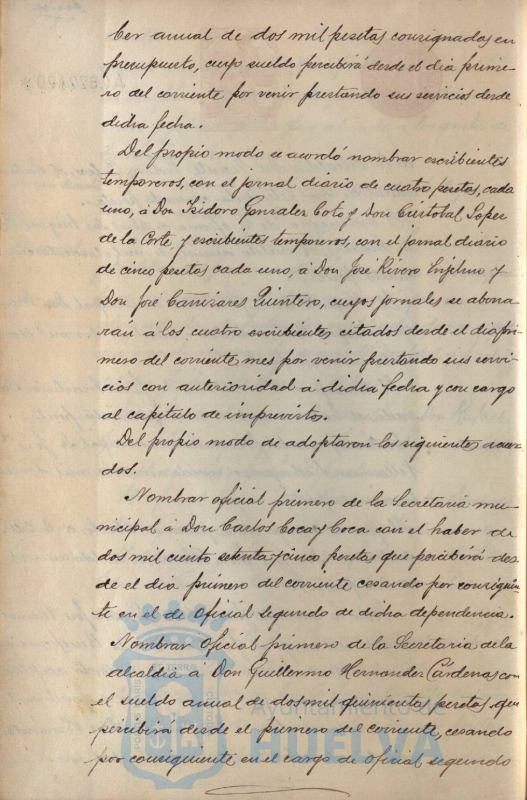 ber anual de dos mil pesetas consignados en
presupuesto, cuyo sueldo percibirá desde el dia prime-
ro del corriente por venir prestando sus servicios desde
dicha fecha.
Del propio modo se acordó nombrar escribientes
temporeros, con el jornal diario de cuatro pesetas, cada
uno, á Don Isidoro Gonzalez Coto y Don Cristobal Lopez
de la Corte, y escribientes temporeros, con el jornal diario
de cinco pesetas cada uno, á Don José Rivero y
Don José Cañizares Quintero, cuyos jornales se abona-
rán á los cuatro escribientes citados desde el dia pri-
mero del corriente mes por venir prestando sus servi-
cios con anterioridad á dicha fecha y con cargo
al capitulo de imprevistos.
Del propio modo de adoptaron los siguientes acuer-
dos.
Nombrar oficial primero de la Secretaria mu-
nicipal á Don Carlos Coca y Coca con el haber de
dos mil ciento setenta y cinco pesetas que percibirá des-
de el dia primero del corriente cesando por consiguien-
te en el de Oficial segundo de dicha dependencia.
Nombrar Oficial primero de la Secretaria de la
alcaldia á Don Guillermo Hernandez Cárdenas con
el sueldo anual de dos mil quinientas pesetas, que
percibirá desde el primero del corriente, cesando
por consiguiente en el cargo de Oficial segundo
Ayuntamiento de
HUELVA